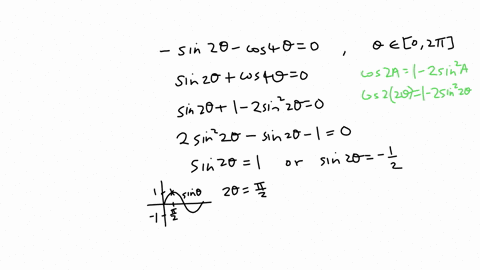 - sin 2θ - cos 4θ = 0 , θ ∈ [0, 2π]
sin 2θ + cos 4θ = 0
cos 2A = 1 - 2 sin²A
cos 2(2θ) = 1 - 2 sin²2θ
sin 2θ + 1 - 2 sin²2θ = 0
2 sin²2θ - sin 2θ - 1 = 0
sin 2θ = 1 or sin 2θ = - 1/2
1 sin θ 2θ = π/2
-1 π/2